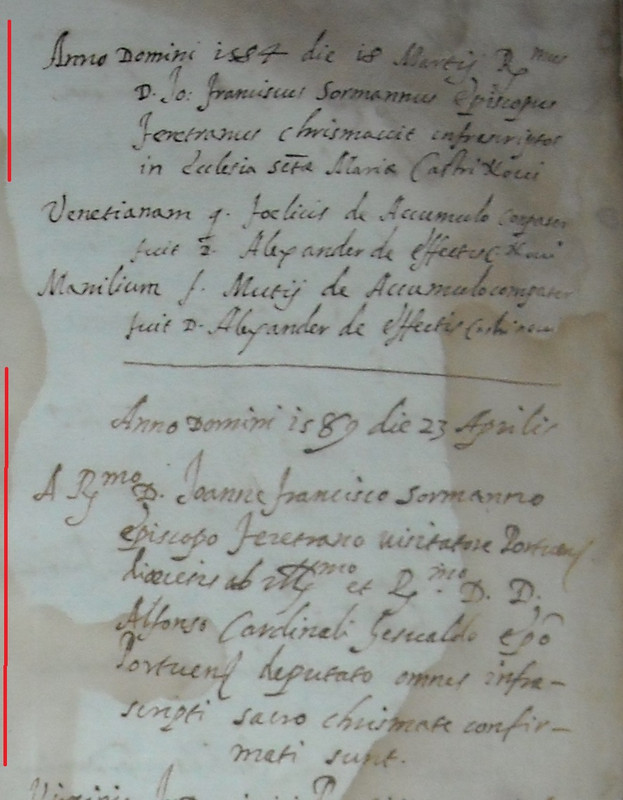 Anno Domini 1584 die 18 Martij R.mus
D. Jo: Franciscus Sormannus Episcopus
Feretranus chrismavit infrascriptos
in Ecclesia sctæ Mariæ Castri Noui
Venetianam q. Foelicis de Accumulo Compater
fuit D. Alexander de effectis C. Noui
Manilium f. Mutij de Accumulo compater
fuit D. Alexander de effectis Castri noui
Anno Domini 1589 die 23 Aprilis
A R.mo D. Joanne francisco Sormanno
episcopo Feretrano uisitatore Portuen
dioecesis ab Ill.mo et R.mo D. D.
Alfonso Cardinali Gesualdo epo
Portuen deputato omnes infra-
scripti sacro chrismate confir-
mati sunt.